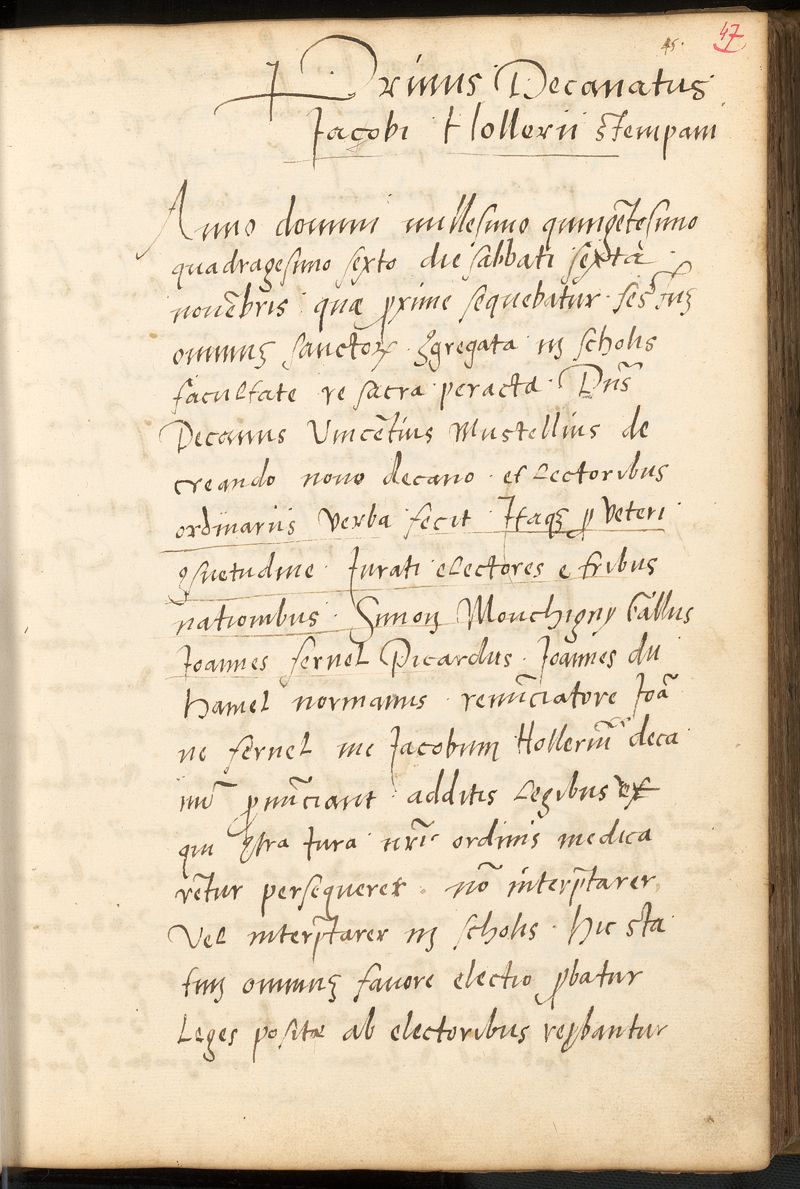 45.
47
Primus Decanatus
Jacobi Hollerii Stempani
Anno domini millesimo quingētesimo
quadragesimo sexto die sabbati sexta
novēbris quæ ꝓxime sequebatur festūꝫ
omniuꝫ sanctoꝝ ꝯgregata inꝫ scholis
facultate re sacra peracta. Dn̄s
Decanus Vincētius Mustellius de
creando novo decano et Lectoribus
ordinariis verba fecit Itaqꝫ ꝓ veteri
ꝯsuetudine Jurati electores e tribus
nationibus. Simon Mouchigny Gāllus
Joannes fernel Picardus. Joannes du
hamel normanus renūciatore Joā
ne fernel me Jacobum Holleriū deca
nū ꝓnūciant additis Legibus
qui ꝯtra Jura nr̄i ordinis medica
rētur persequerer. nō interp̄tarer
Vel interp̄tarer inꝫ scholis. hic sta
tim omniuꝫ favore electio ꝓbatur
Leges positæ ab electoribus reꝓbantur